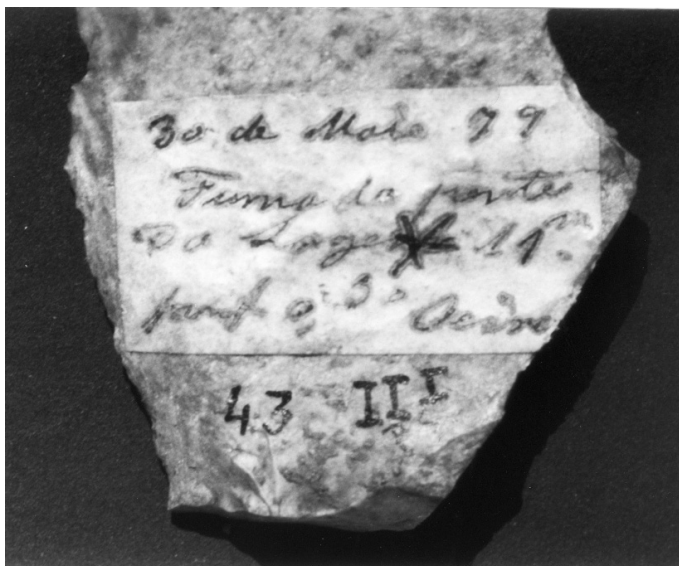 30 de Maio 79
Furna da ponte
Da Lage 11.m
para o 3o Oeiras
43 III